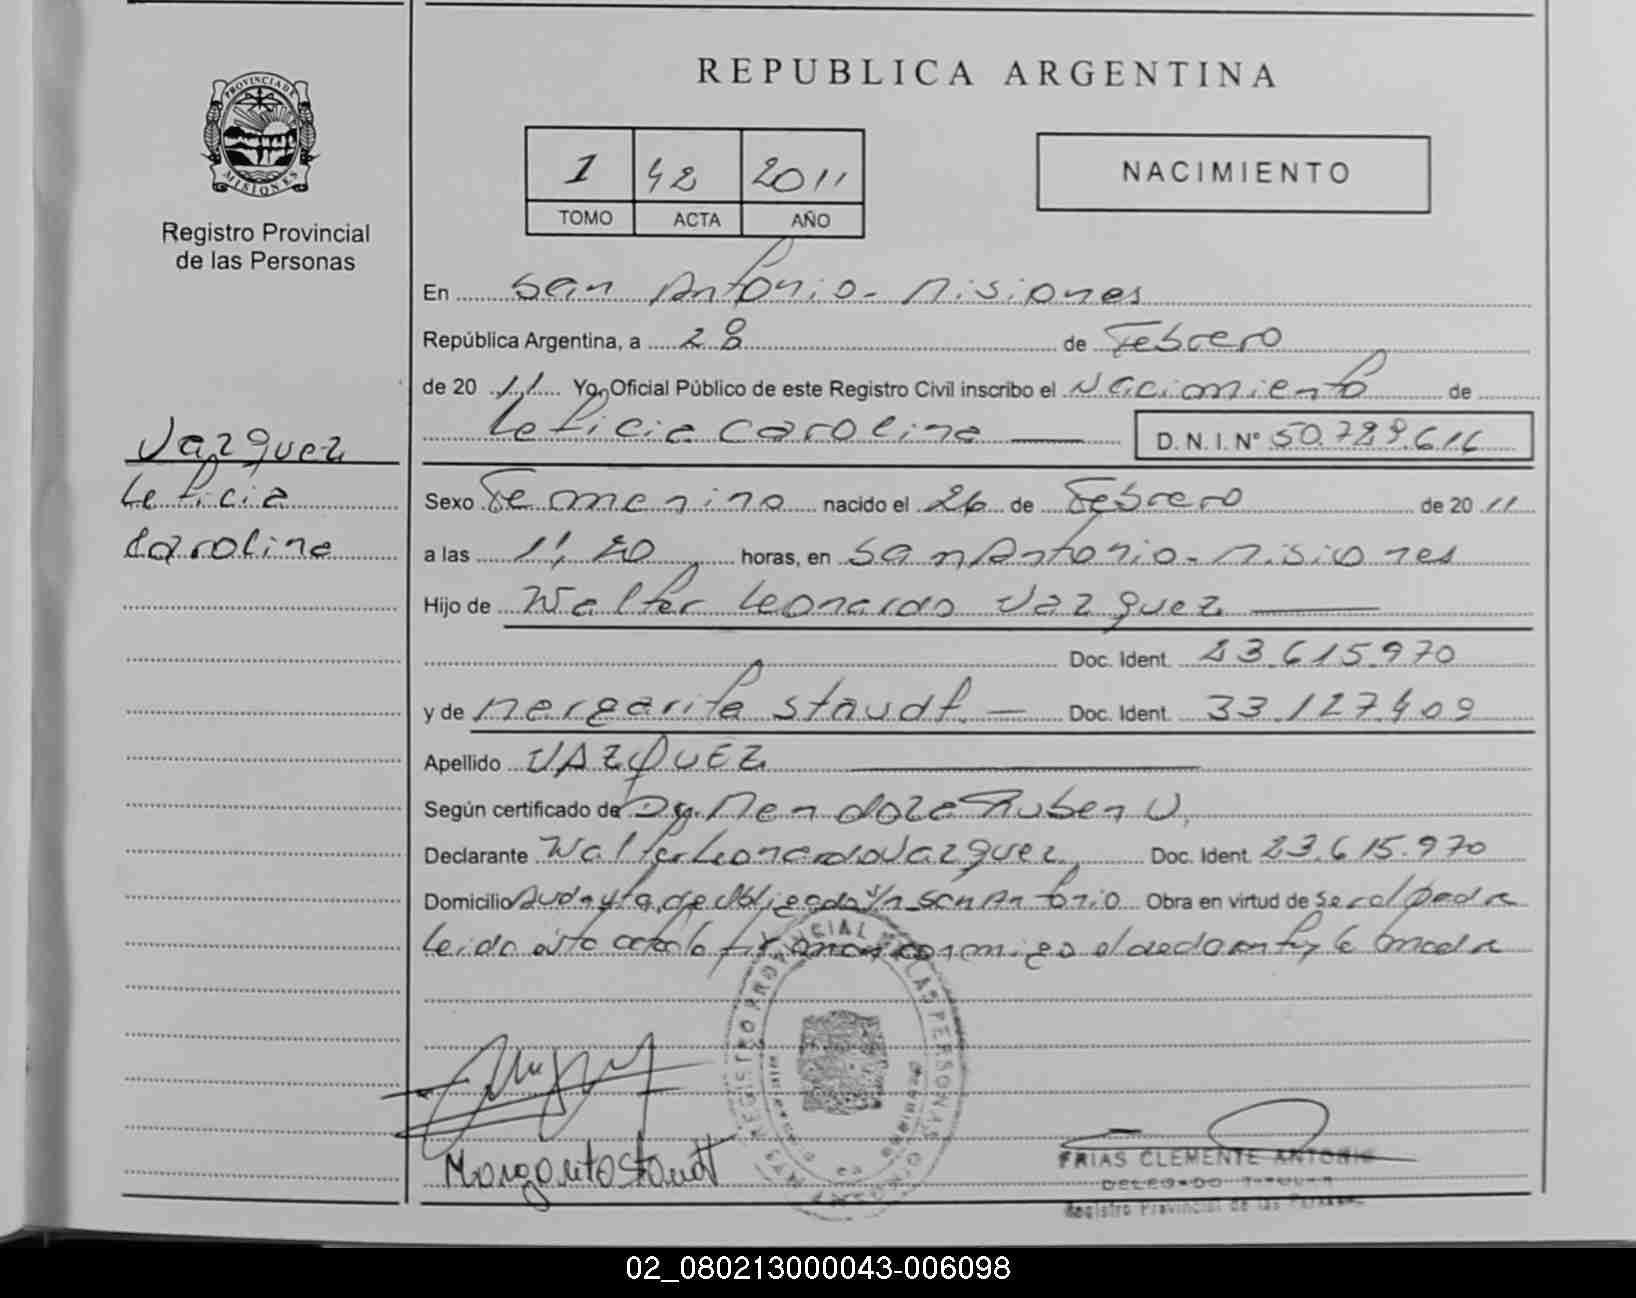 PROVINCIA DE
MISIONES
Registro Provincial
de las Personas
REPUBLICA ARGENTINA
1 42 2011
TOMO ACTA AÑO
NACIMIENTO
En San Antonio - Misiones
República Argentina, a 28 de Febrero
de 20 11 Yo, Oficial Público de este Registro Civil inscribo el Nacimiento de
Leticia Carolina
D. N. I. Nº 50.789.616
Vazquez
Leticia
Carolina
Sexo Femenino nacido el 26 de Febrero de 20 11
a las 11,20 horas, en San Antonio - Misiones
Hijo de Walter Leonardo Vazquez
Doc. Ident. 23.615.970
y de Margarita Staudt. Doc. Ident. 33.127.409
Apellido VAZQUEZ
Según certificado de Dr. Mendoza Ruben
Declarante Walter Leonardo Vazquez, Doc. Ident. 23.615.970
Domicilio San Antonio Obra en virtud de Ser el Padre
leida esta acta la firman conmigo el declarante y la madre
REGISTRO PROVINCIAL DE LAS PERSONAS
Margarita Staudt
FRIAS CLEMENTE ANTONIO
DELEGADO TITULAR
Registro Provincial de las Personas
02_080213000043-006098